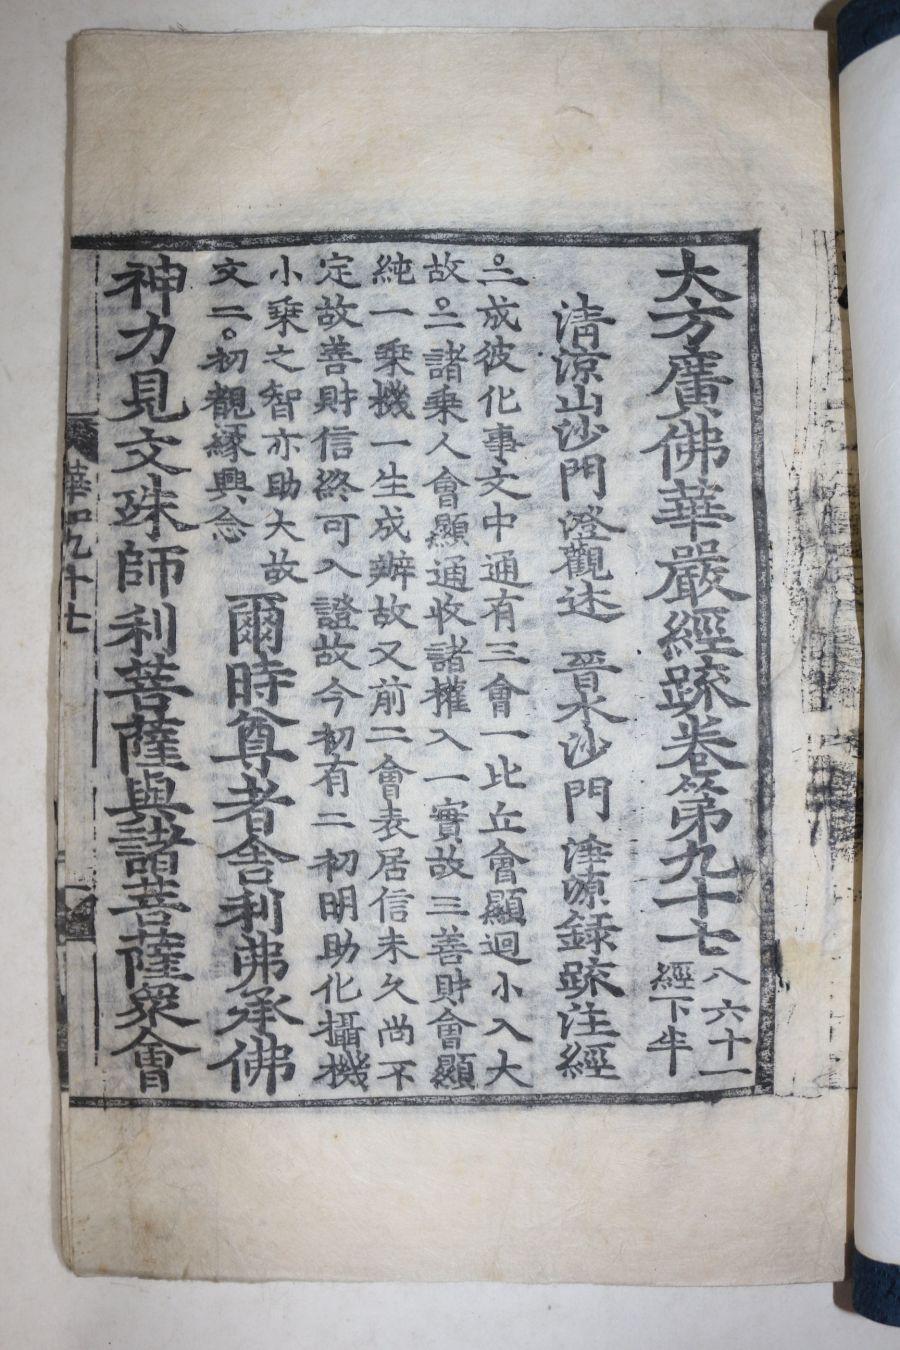 大方廣佛華嚴經疏卷第九十七 八六十一
經下半
清涼山沙門澄觀述 晉水沙門淨源録疏注經
。二成彼化事文中通有三會一比丘會顯迴小入大
故。二諸乗人會顯通收諸權入一實故三善財會顯
純一乗機一生成辦故又前二會表居信未久尚不
定故善財信終可入證故今初有二初明助化攝機
小乗之智亦助大故
文二。初觀縁興念
爾時尊者舎利弗承佛
神力見文殊師利菩薩與諸菩薩衆會
九十七